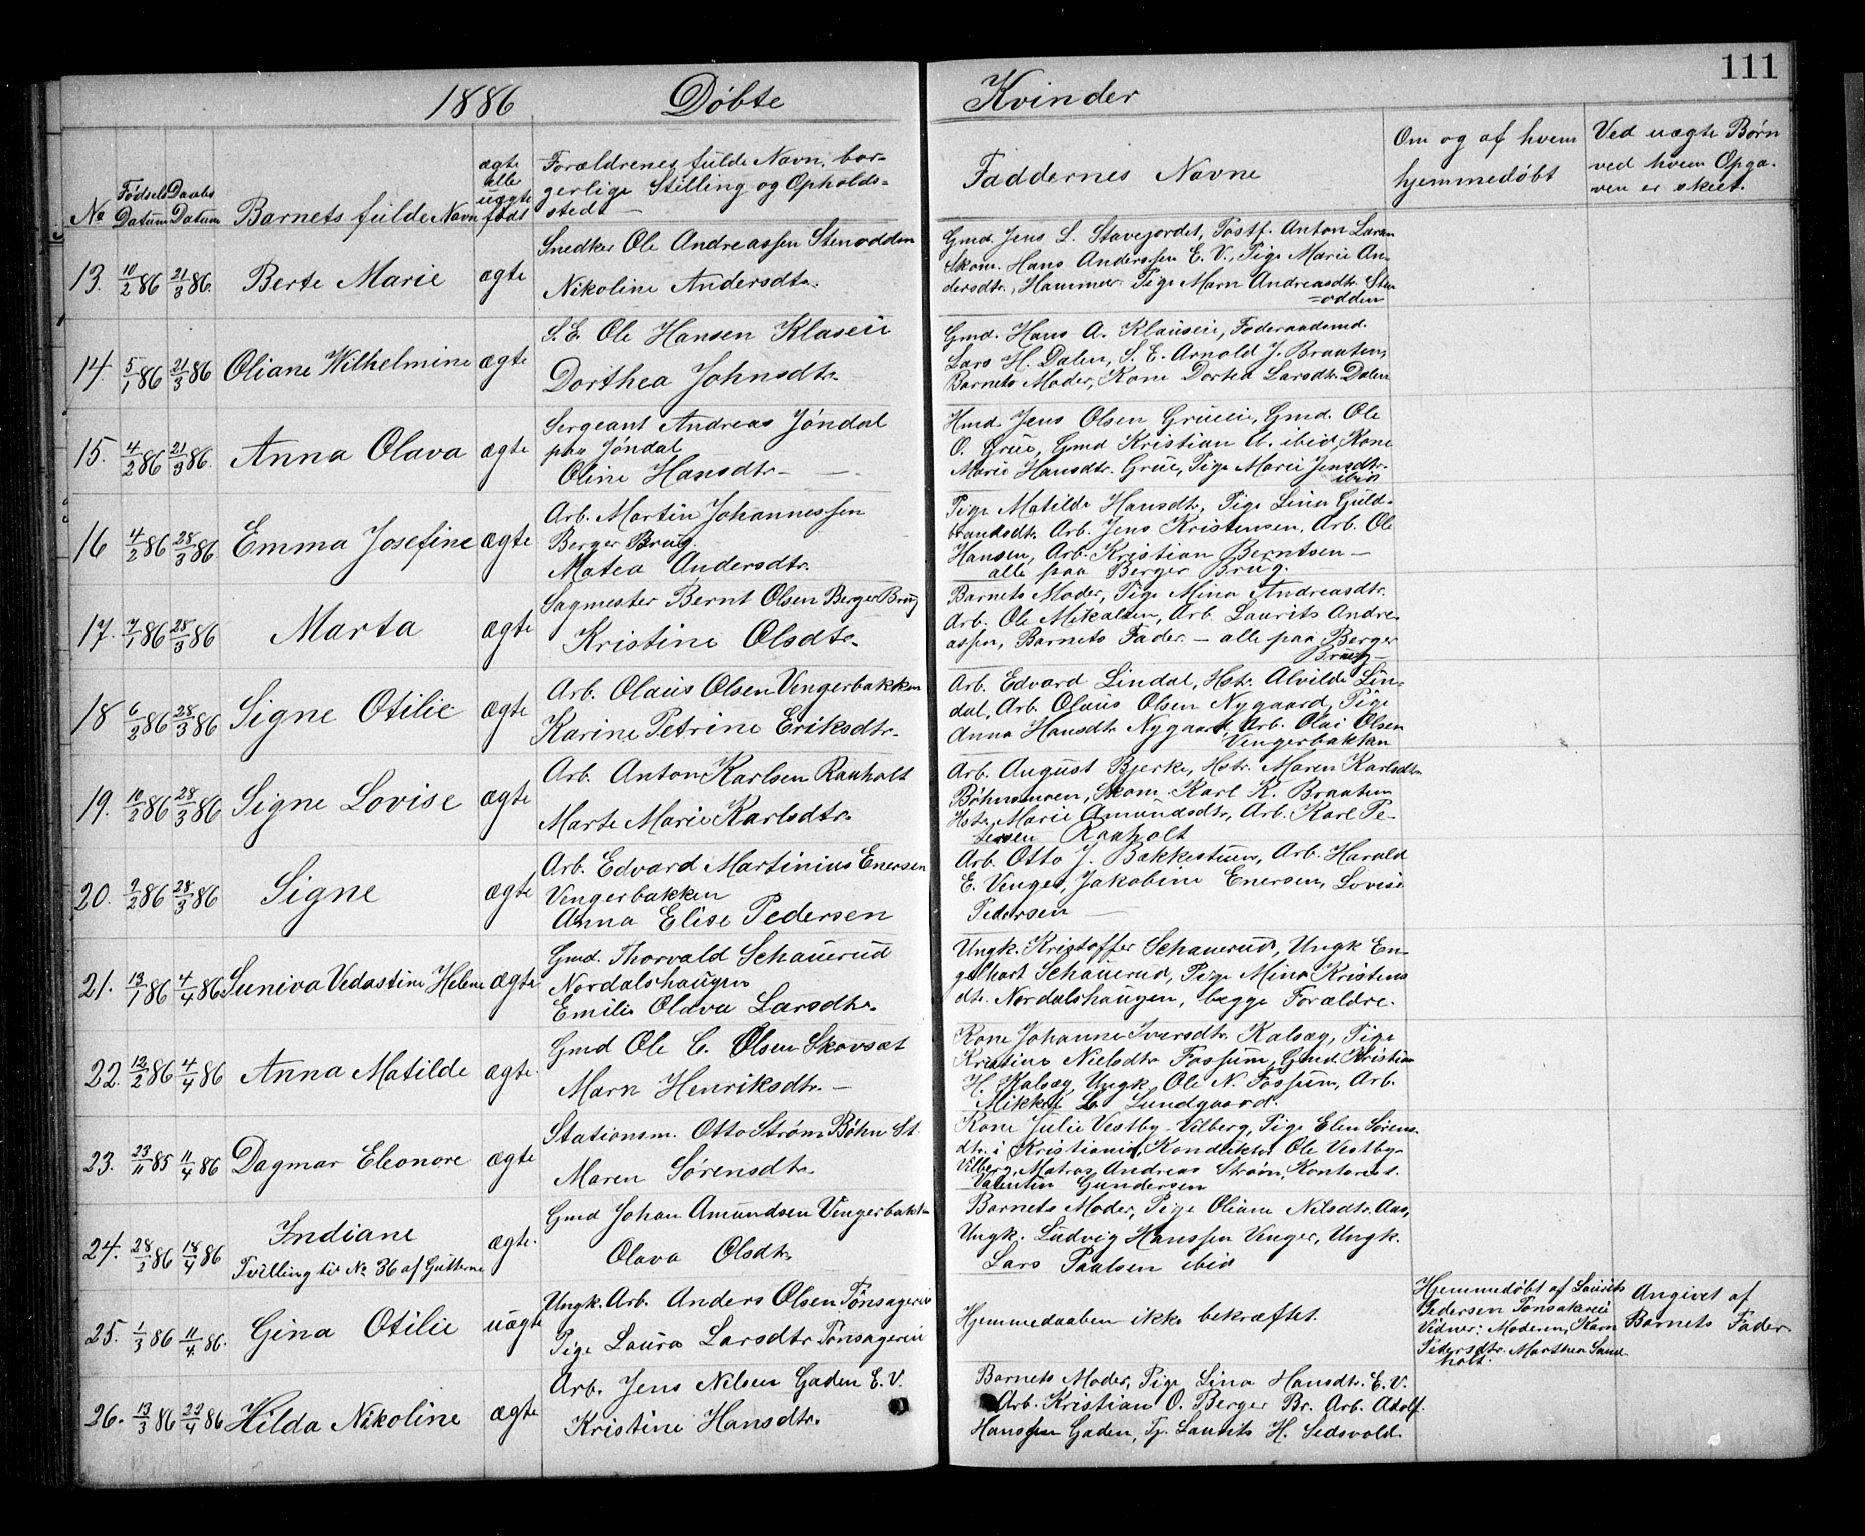 111
1886 Døbte Kvinder
No
Fødsels Datum
Daabs Datum
Barnets fulde Navn
ægte elle uægte født
Forældrenes fulde Navn, bor-
gerlige Stilling og Opholds-
sted
Faddernes Navne
Om og af hvem
hjemmedøbt
Ved uægte Børn
ved hvem Opga-
ven er skeet.
13. 10/2 86 21/3 86. Berte Marie ægte
Snedker Ole Andreassen Stenodden
Nikoline Andersdtr.
Gmd. Jens L. Stavejordet, Postf. Anton Larsen
Skom. Hans Anderssen E. V., Pige Marie An-
dersdtr., Hammer Pige Marn Andreasdtr. Sten
=odden
14. 5/1 86 21/3 86 Oliane Wilhelmine ægte
S. E. Ole Hansen Klaseie
Dorthea Johnsdtr.
Gmd. Hans A. Klauseie, Føderaadsmd.
Lars H. Dalen, S. E. Arnold J. Braaten,
Barnets Moder, Kone Dortea Larsdtr. Dalen
15. 4/2 86 21/3 86. Anna Olava ægte
Sergeant Andreas Jøndal
paa Jøndal
Oline Hansdtr.
Hmd. Jens Olsen Grueeie, Gmd. Ole
O. Grue, Gmd Kristian A. ibid, Kone
Marie Hansdtr. Grue, Pige Marie Jensdtr.
ibid
16 4/2 86 28/3 86 Emma Josefine ægte
Arb. Martin Johannessen
Berger Brug.
Matea Andersdtr.
Pige Matilde Hansdtr, Pige Lina Guld-
brandsdtr. Arb. Jens Kristensen, Arb. Ole
Hansen, Arb. Kristian Berntsen —
alle paa Berger Brug.
17. 7/1 86 28/3 86 Marta ægte
Sagmester Bernt Olsen Berger Brug
Kristine Olsdtr.
Barnets Moder, Pige Mina Andreasdtr.
Arb. Ole Mikalsen, Arb. Laurits Andre-
assen, Barnets Fader. — alle paa Berger
Brug —
18 6/2 86 28/3 86 Signe Otilie ægte
Arb. Olaus Olsen Vengerbakken
Karine Petrine Eriksdtr.
Arb. Edvard Lindal, Hstr. Alvilde Lin-
dal, Arb. Olaus Olsen Nygaard, Pige
Anna Hansdtr Nygaard, Arb. Olai Olsen
Vengerbakken
19. 10/2 86 28/3 86 Signe Lovise ægte
Arb. Anton Karlsen Raaholt
Marte Marie Karlsdtr.
Arb. August Bjerke, Hstr. Maren Karlsdtr
Bøhnsmoen, Skom. Karl K. Braaten
Hstr. Marie Amundsdtr, Arb. Karl Pe-
tersen Raaholt
20. 9/2 86 28/3 86 Signe ægte
Arb. Edvard Martinius Enersen
Vengerbakken
Anna Elise Pedersen
Arb. Otto J. Bakkestuen, Arb. Harald
E. Venger, Jakobine Enersen, Lovise
Pedersen —
21. 13/1 86 4/4 86 Suniva Vedastine Helene ægte
Gmd. Thorvald Schauerud
Nordalshaugen
Emilie Olava Larsdtr.
Ungk. Kristoffer Schauerud, Ungk En-
gelhart Schauerud, Pige Mina Kristens
dtr. Nordalshaugen, begge Forældre.
22. 12/2 86 4/4 86 Anna Matilde ægte.
Gmd Ole C. Olsen Skovsæt
Marn Henriksdtr. —
Kone Johanne Iversdtr. Kalsæg, Pige
Kristine Nielsdtr Fossum, Gmd. Kristian
H. Kalsæg, Ungk Ole N. Fossum, Arb.
Mikkel L. Lundgaard.
23. 23/11 85 11/4 86 Dagmar Eleonore ægte
Stationsm. Otto Strøm Bøhn St.
Maren Sørensdtr.
Kone Julie Vestby Vilberg, Pige Elen Sørens-
dtr. i Kristiania, Konduktør Ole Vestby
Vilberg, Matros Andreas Strøm, Kontorist
Valentin Gundersen
24. 28/2 86 18/4 86 Indiane ægte.
Tvilling til No 36 af Gutterne
Gmd Johan Amundsen Vengerbakk
Olava Olsdtr.
Barnets Moder, Pige Oliane Nilsdtr. Aas,
Ungk. Ludvig Hanssen Venger, Ungk.
Lars Paalsen ibid
25. 1/3 86 11/4 86. Gina Otilie uægte
Ungk. Arb. Anders Olsen Tønsagereie
Pige Laura Larsdtr Tønsagereie
Hjemmedaaben ikke bekræftet.
Hjemmedøbt af Laurits
Pedersen Tønsakereie
Vidner: Moderen, Karn
Pedersdtr. Marthea Sand
holt.
Angivet af
Barnets Fader.
26. 13/3 86 22/4 86 Hilda Nikoline ægte
Arb. Jens Nilsen Gaden E. V.
Kristine Hansdtr.
Barnets Moder, Pige Lina Hansdtr. E. V.
Arb. Kristian O. Berger Br. Arb. Adolf
Hanssen Gaden, Tj. Laurits H. Sedsvold